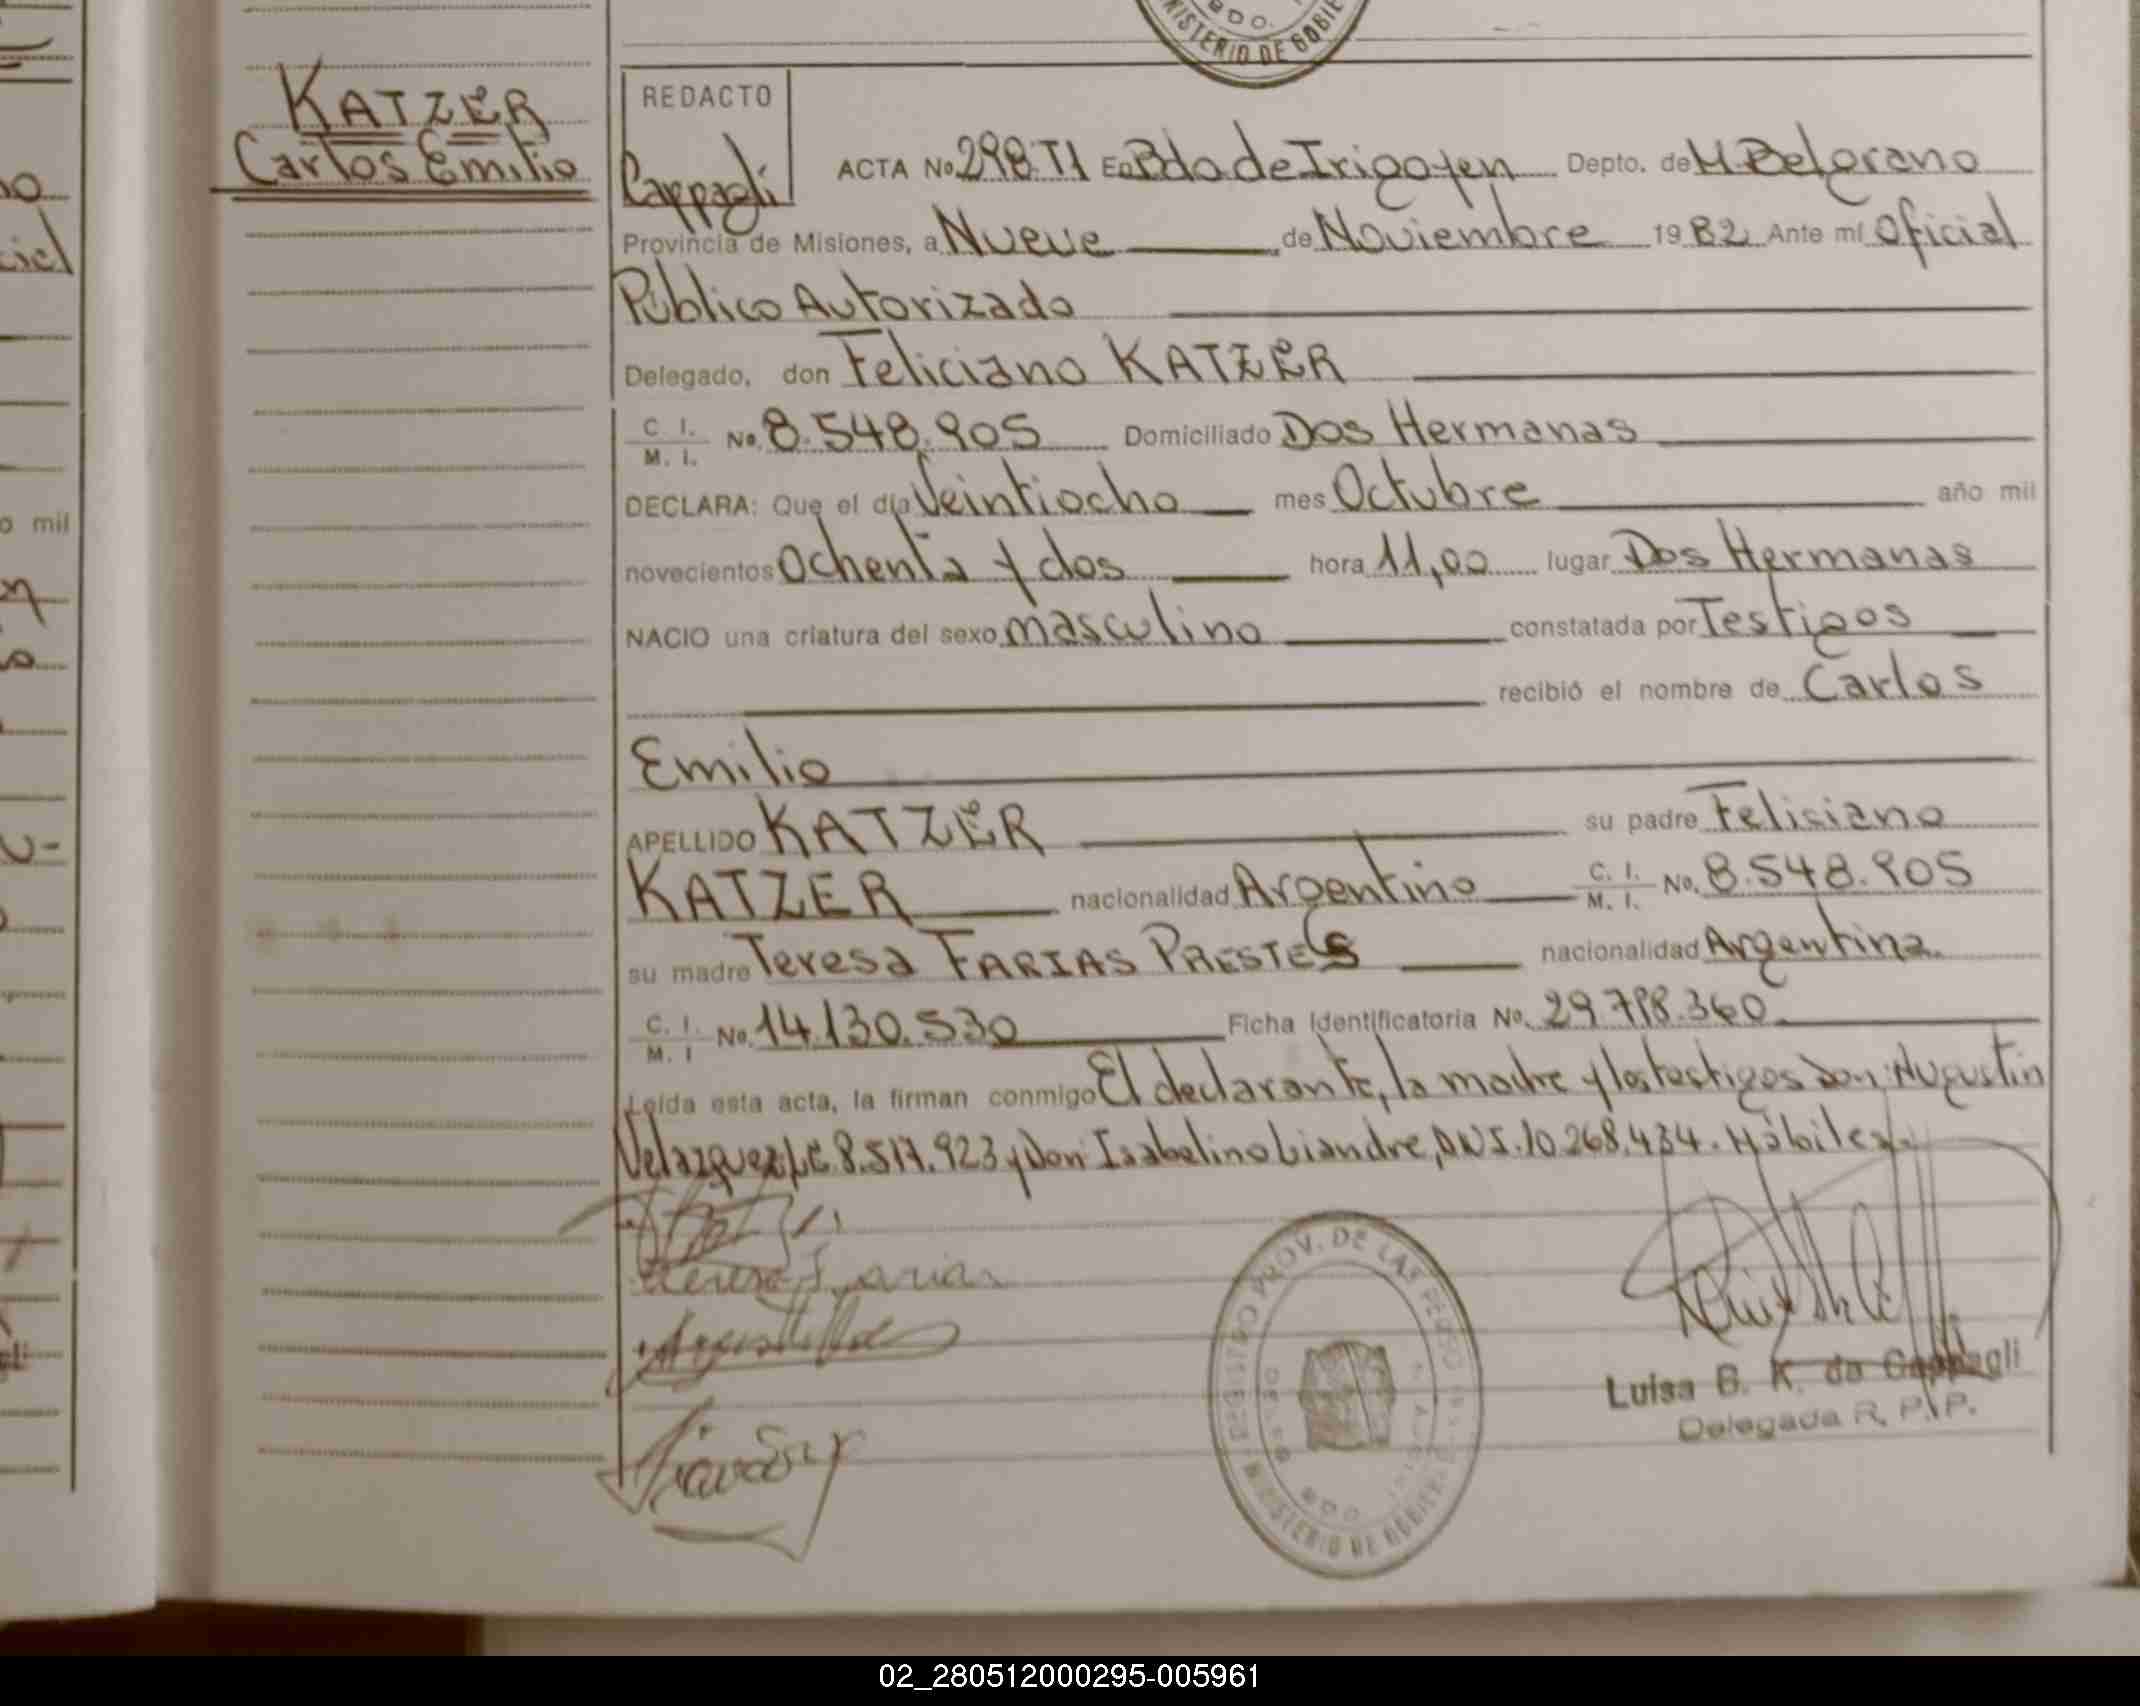 MINISTERIO DE GOBIE
BDO.
KATZER
Carlos Emilio
REDACTO
Cappagli
ACTA No 298. T1 En Bdo de Irigoyen Depto. de M Belgrano
Provincia de Misiones, a Nueve de Noviembre 1982 Ante mí Oficial
Público Autorizado
Delegado, don Feliciano KATZER
C. I. / M. I. No. 8.548.905 Domiciliado Dos Hermanas
DECLARA: Que el día Veintiocho mes Octubre año mil
novecientos Ochenta y dos hora 11,00 lugar Dos Hermanas
NACIO una criatura del sexo masculino constatada por Testigos
recibió el nombre de Carlos
Emilio
APELLIDO KATZER su padre Felisiano
KATZER nacionalidad Argentino C. I. / M. I. No. 8.548.905
su madre Teresa FARIAS PRESTES nacionalidad Argentina.
C. I. / M. I No. 14.130.530 Ficha Identificatoria No. 29.798.360
Leída esta acta, la firman conmigo El declarante, la madre y los testigos Don: Augustin
Velazquez, L.E. 8.517.923 y Don: Isabelino Liandre, D.N.I. 10.268.434. Hábiles.
Teresa Farias
REGISTRO PROV. DE LAS PERSO
MINISTERIO DE GOBIER
BDO
Luisa B. K. de Cappagli
Delegada R. P. P.
o mil
02_280512000295-005961